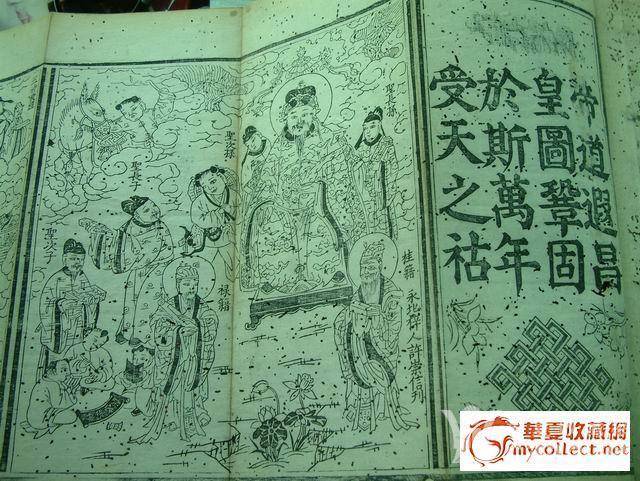 帝道遐昌
皇圖鞏固
於斯萬年
受天之祜
聖長孫
桂籍
聖次孫
聖長子
聖次子
華夏收藏網
mycollect.net